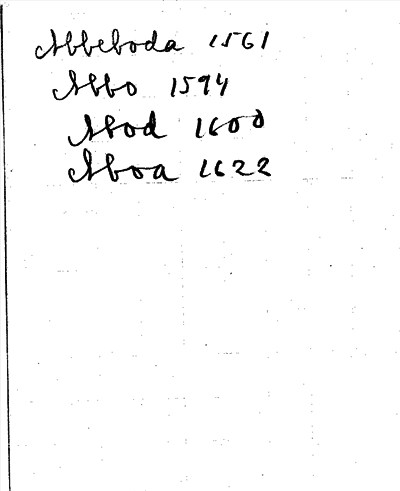 Abbeboda 1561
Abbo 1594
Abod 1600
Aboa 1622